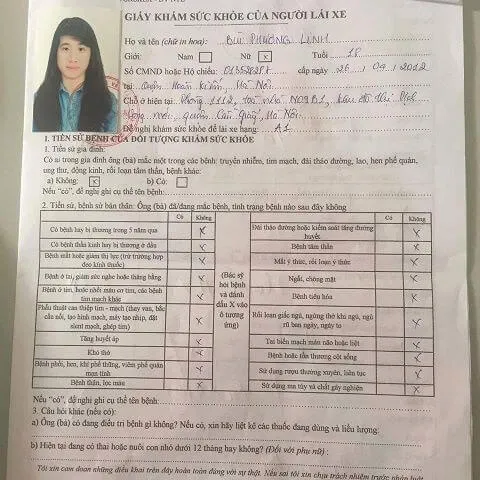 GIẤY KHÁM SỨC KHỎE CỦA NGƯỜI LÁI XE
Họ và tên (chữ in hoa): BÙI PHƯƠNG LINH
Giới: Nam Nữ X Tuổi 18
Số CMND hoặc Hộ chiếu: cấp ngày 26 / 04 / 2012
tại Hoàn Kiếm, Hà Nội
Chỗ ở hiện tại: Phòng 1112, toà nhà N09B1, khu đô thị Dịch
Vọng mới, quận Cầu Giấy, Hà Nội
Đề nghị khám sức khỏe để lái xe hạng: A1
I. TIỀN SỬ BỆNH CỦA ĐỐI TƯỢNG KHÁM SỨC KHỎE
1. Tiền sử gia đình:
Có ai trong gia đình ông (bà) mắc một trong các bệnh: truyền nhiễm, tim mạch, đái tháo đường, lao, hen phế quản,
ung thư, động kinh, rối loạn tâm thần, bệnh khác:
a) Không: X b) Có:
Nếu “có”, đề nghị ghi cụ thể tên bệnh:
2. Tiền sử, bệnh sử bản thân: Ông (bà) đã/đang mắc bệnh, tình trạng bệnh nào sau đây không
Có Không
Có bệnh hay bị thương trong 5 năm qua X
Có bệnh thần kinh hay bị thương ở đầu X
Bệnh mắt hoặc giảm thị lực (trừ trường hợp
đeo kính thuốc) X
Bệnh ở tai, giảm sức nghe hoặc thăng bằng X
Bệnh ở tim, hoặc nhồi máu cơ tim, các bệnh
tim mạch khác X
Phẫu thuật can thiệp tim - mạch (thay van, bắc
cầu nối, tạo hình mạch, máy tạo nhịp, đặt
slent mạch, ghép tim) X
Tăng huyết áp X
Khó thở X
Bệnh phổi, hen, khí phế thũng, viêm phế quản
mạn tính X
Bệnh thận, lọc máu X
(Bác sỹ
hỏi bệnh
và đánh
dấu X vào
ô tương
ứng)
Có Không
Đái tháo đường hoặc kiểm soát tăng đường
huyết X
Bệnh tâm thần X
Mất ý thức, rối loạn ý thức X
Ngất, chóng mặt X
Bệnh tiêu hóa X
Rối loạn giấc ngủ, ngừng thở khi ngủ, ngủ
rũ ban ngày, ngáy to X
Tai biến mạch máu não hoặc liệt X
Bệnh hoặc tổn thương cột sống X
Sử dụng rượu thường xuyên, liên tục X
Sử dụng ma túy và chất gây nghiện X
Nếu “có”, đề nghị ghi cụ thể tên bệnh:
3. Câu hỏi khác (nếu có):
a) Ông (bà) có đang điều trị bệnh gì không? Nếu có, xin hãy liệt kê các thuốc đang dùng và liều lượng:
b) Hiện tại đang có thai hoặc nuôi con nhỏ dưới 12 tháng hay không? (Đối với phụ nữ) :
Tôi xin cam đoan những điều khai trên đây hoàn toàn đúng với sự thật. Nếu sai tôi xin chịu trách nhiệm trước pháp luật